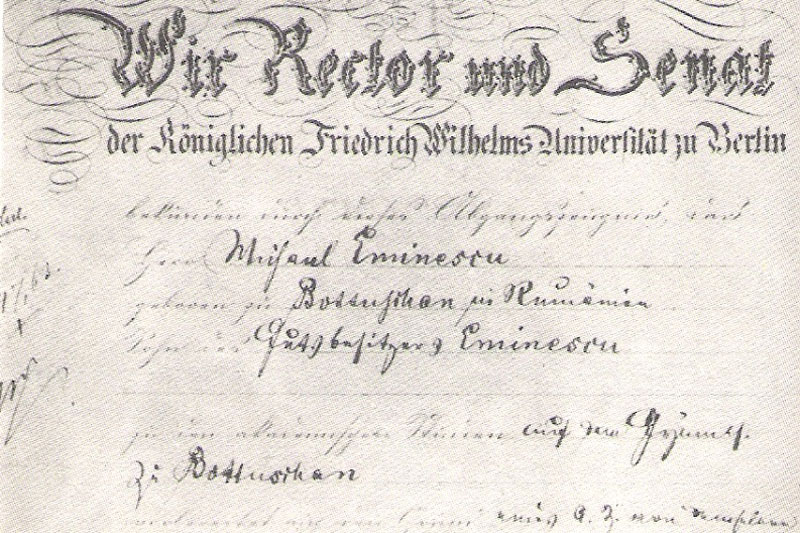 Wir Rector und Senat
der Königlichen Friedrich Wilhelms Universität zu Berlin
bekunden durch dieses Abgangszeugniß, daß
Herr Michael Eminescu
geboren zu Bottuschan in Rumänien
Sohn des Gutsbesitzers Eminescu
zu den akademischen Studien auf dem Gymnas.
zu Bottuschan
vorbereitet auf den Grund eines